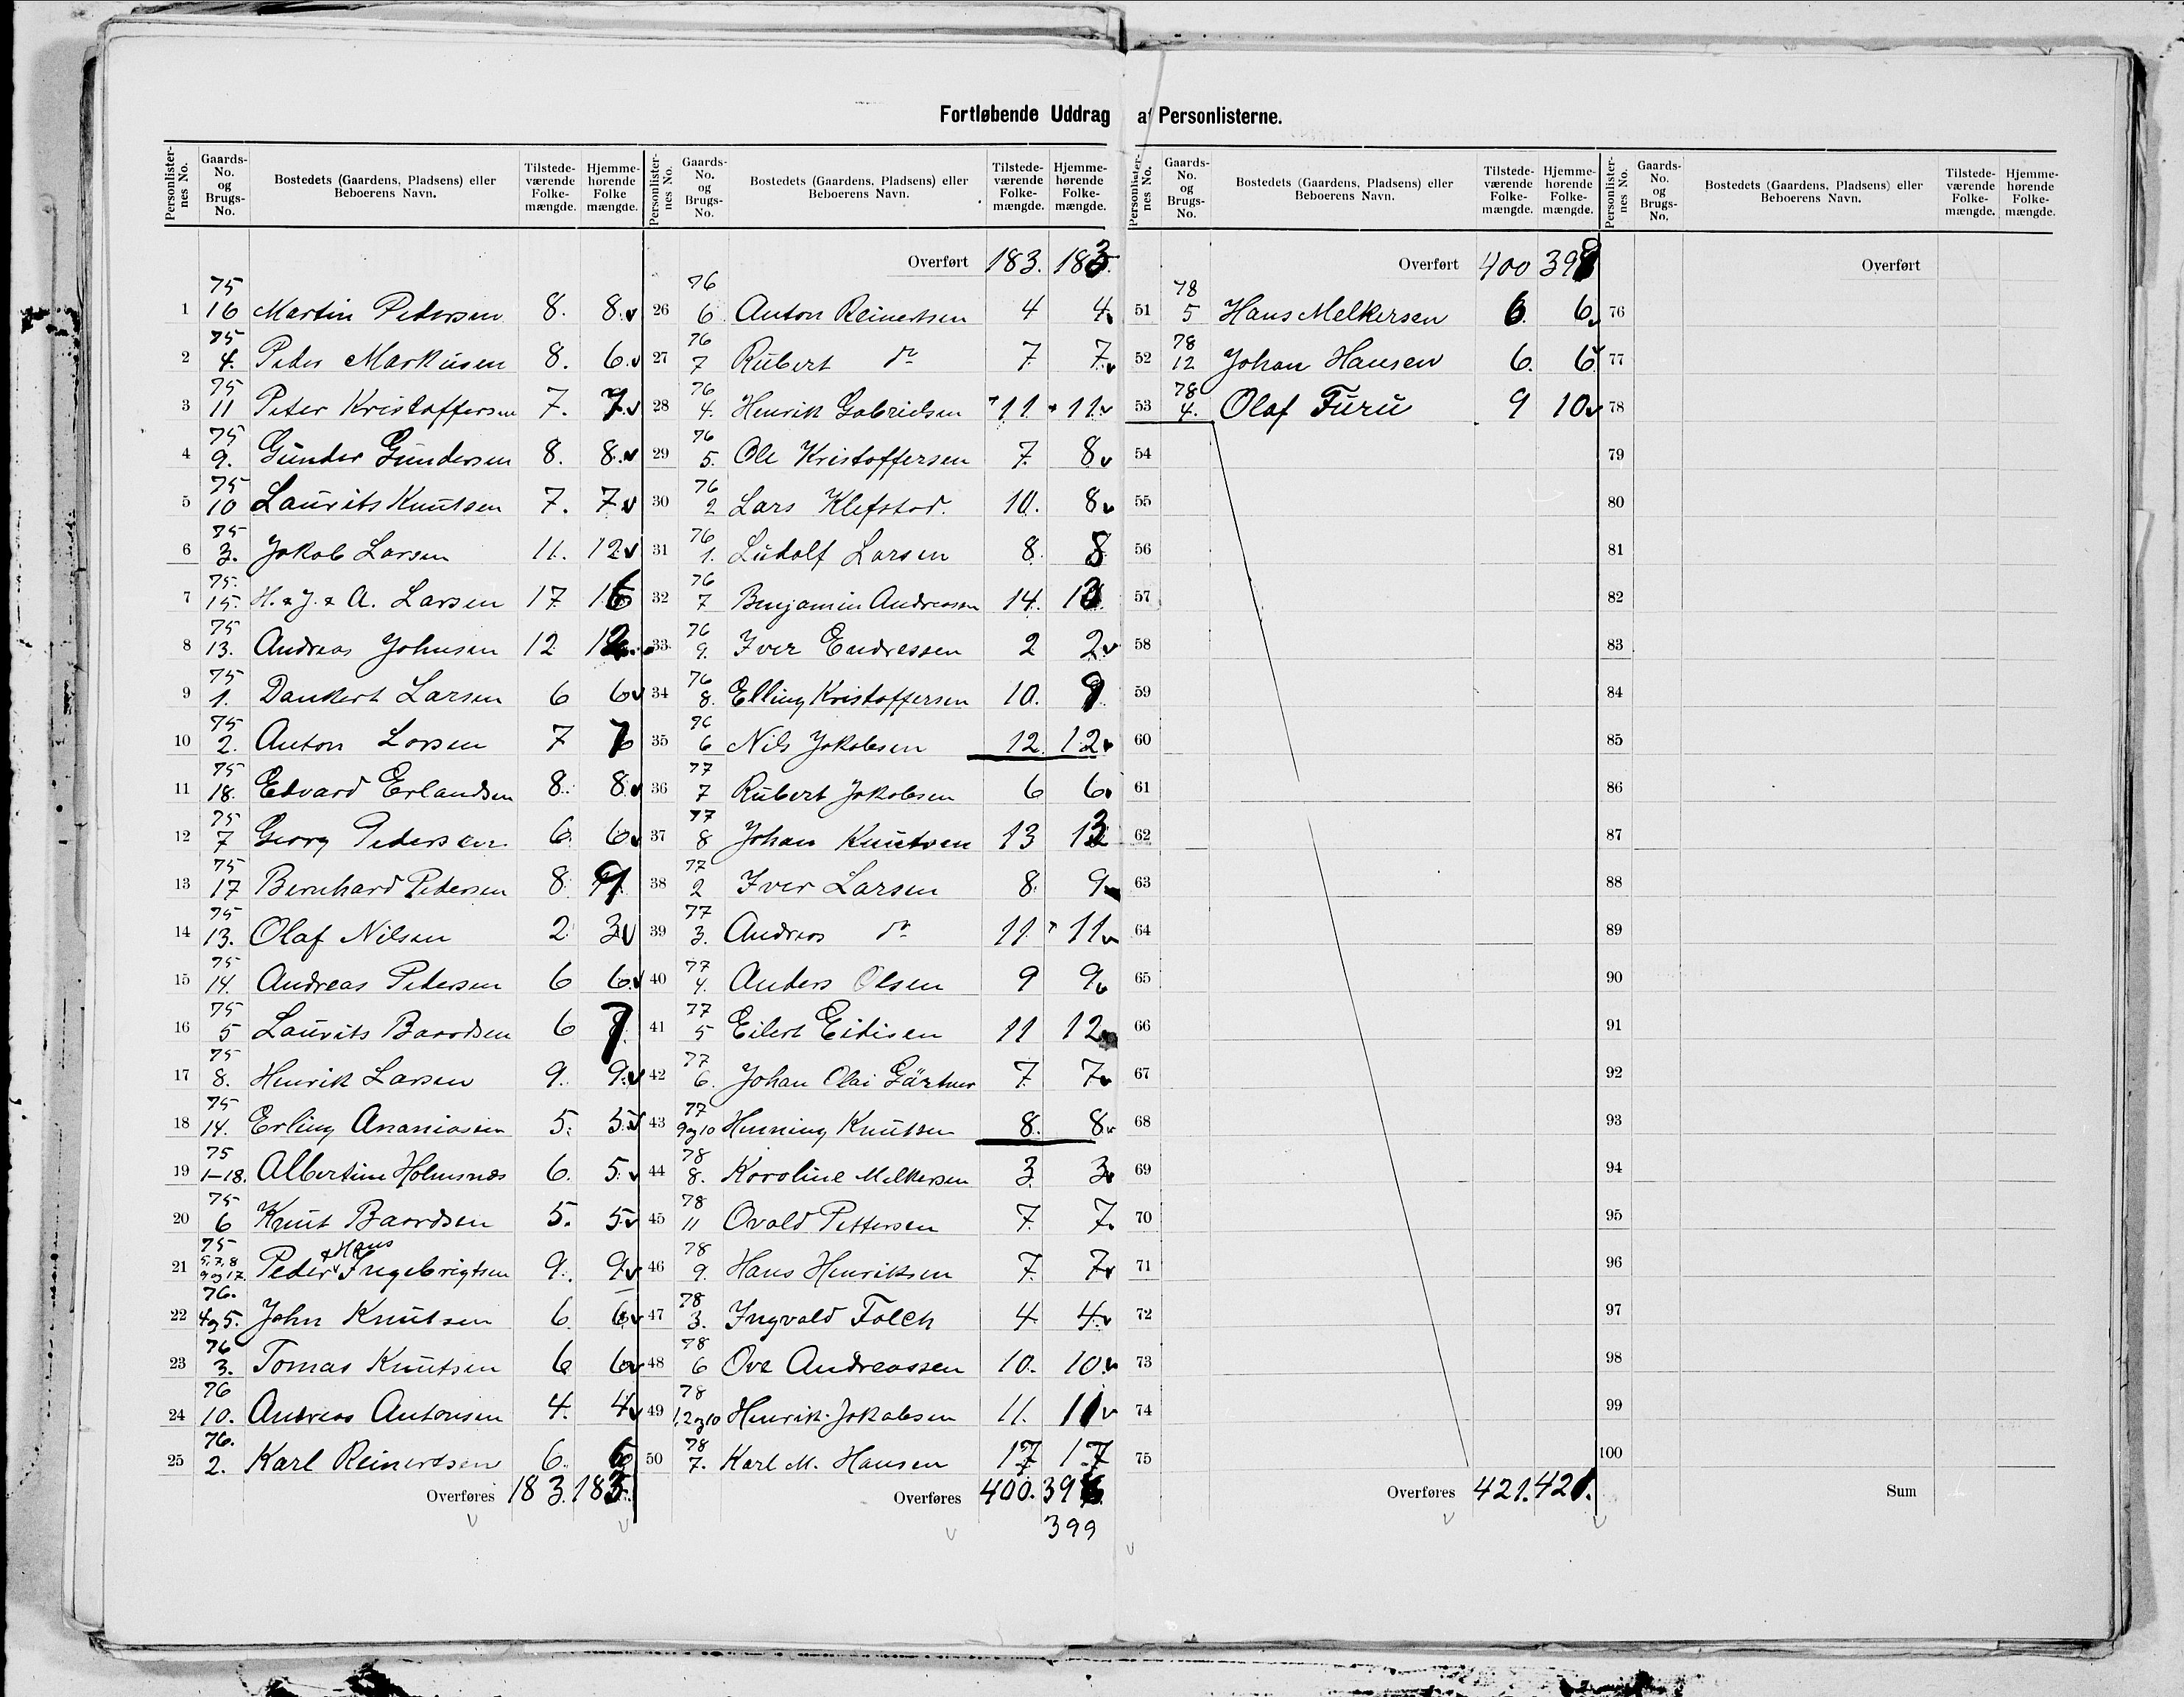 Fortløbende Uddrag af Personlisterne.
Personlister-nes No. Gaards-No. og Brugs-No. Bostedets (Gaardens, Pladsens) eller Beboerens Navn. Tilstede-værende Folke-mængde. Hjemme-hørende Folke mængde.
1 75 16 Martin Pedersen 8. 8.
2 75 4. Peder Markusen 8. 6.
3 75 11 Peter Kristoffersen 7. 7.
4 75 9. Günder Gündersen 8. 8.
5 75 10 Laurits Knutsen 7. 7.
6 75 3. Jakob Larsen 11. 12
7 75. 15. H. & J. & A. Larsen 17 16
8 75 13. Andreas Johnsen 12 12
9 75 1. Dankert Larsen 6 6
10 75 2. Anton Larsen 7 7
11 75 18. Edvard Erlandsen 8. 8
12 75 7 Georg Pedersen 6. 6
13 75 17 Bernhard Pedersen 8. 9
14 75 13. Olaf Nilsen 2 3
15 75 14. Andreas Petersen 6 6.
16 75 5 Laurits Baardsen 6 7
17 75 8. Henrik Larsen 9. 9.
18 75 14. Erling Ananiasen 5. 5
19 75 1-18. Albertine Holmsnæs 6. 5.
20 75 6 Knut Baardsen 5. 5
21 75 5, 7, 8 9 og 17. Peder & Hans Ingebrigtsen 9. 9
22 76. 4 og 5. John Knutsen 6. 6
23 76 3. Tomas Knutsen 6 6
24 76 10. Andreas Antonsen 4. 4
25 76. 2. Karl Reinertsen 6. 6
Overføres 183. 183
Personlister-nes No. Gaards-No. og Brugs-No. Bostedets (Gaardens, Pladsens) eller Beboerens Navn. Tilstede-værende Folke-mængde. Hjemme-hørende Folke-mængde.
Overført 183. 183
26 76 6 Anton Reinertsen 4 4
27 76 7 Rübert do 7 7
28 76 4. Henrik Gabrielsen 11 11
29 76 5. Ole Kristoffersen 7. 8
30 76 2 Lars Klefstad. 10. 8
31 76 1. Ludolf Larsen 8. 8
32 76 7 Benjamin Andreassen 14. 13
33. 76 9. Iver Endressen 2 2
34 76 8. Elling Kristoffersen 10. 9
35 76 6 Nils Jakobsen 12. 12
36 77 7 Rübert Jakobsen 6 6
37 77 8 Johan Knutsen 13 13
38 77 2 Iver Larsen 8. 9
39 77 3. Andreas do 11 11
40 77 4. Anders Olsen 9 9
41 77 5 Eilert Eidisen 11 12
42 77 6. Johan Olai Gärtner 7. 7
43 77 9 og 10 Henning Knutsen 8. 8
44 78 8. Karoline Melkersen 3. 3
45 78 11 Ovald Pettersen 7. 7.
46 78 9. Hans Henriksen 7. 7
47 78 3. Ingvald Falch 4. 4
48 78 6 Ove Andreassen 10. 10
49 78 1, 2 og 10 Henrik Jakobsen 11. 11
50 78 7. Karl M. Hansen 17 17
Overføres 400. 39
399
Personlister-nes No. Gaards-No. og Brugs-No. Bostedets (Gaardens, Pladsens) eller Beboerens Navn. Tilstede-værende Folke-mængde. Hjemme-hørende Folke-mængde.
Overført 400 399
51 78 5 Hans Melkersen 6. 6
52 78 12 Johan Hansen 6. 6
53 78 4. Olaf Furü 9 10
54
55
56
57
58
59
60
61
62
63
64
65
66
67
68
69
70
71
72
73
74
75
Overføres 421. 421.
Personlister-nes No. Gaards-No. og Brugs-No. Bostedets (Gaardens, Pladsens) eller Beboerens Navn. Tilstede-værende Folke-mængde. Hjemme-hørende Folke-mængde.
Overført
76
77
78
79
80
81
82
83
84
85
86
87
88
89
90
91
92
93
94
95
96
97
98
99
100
Sum